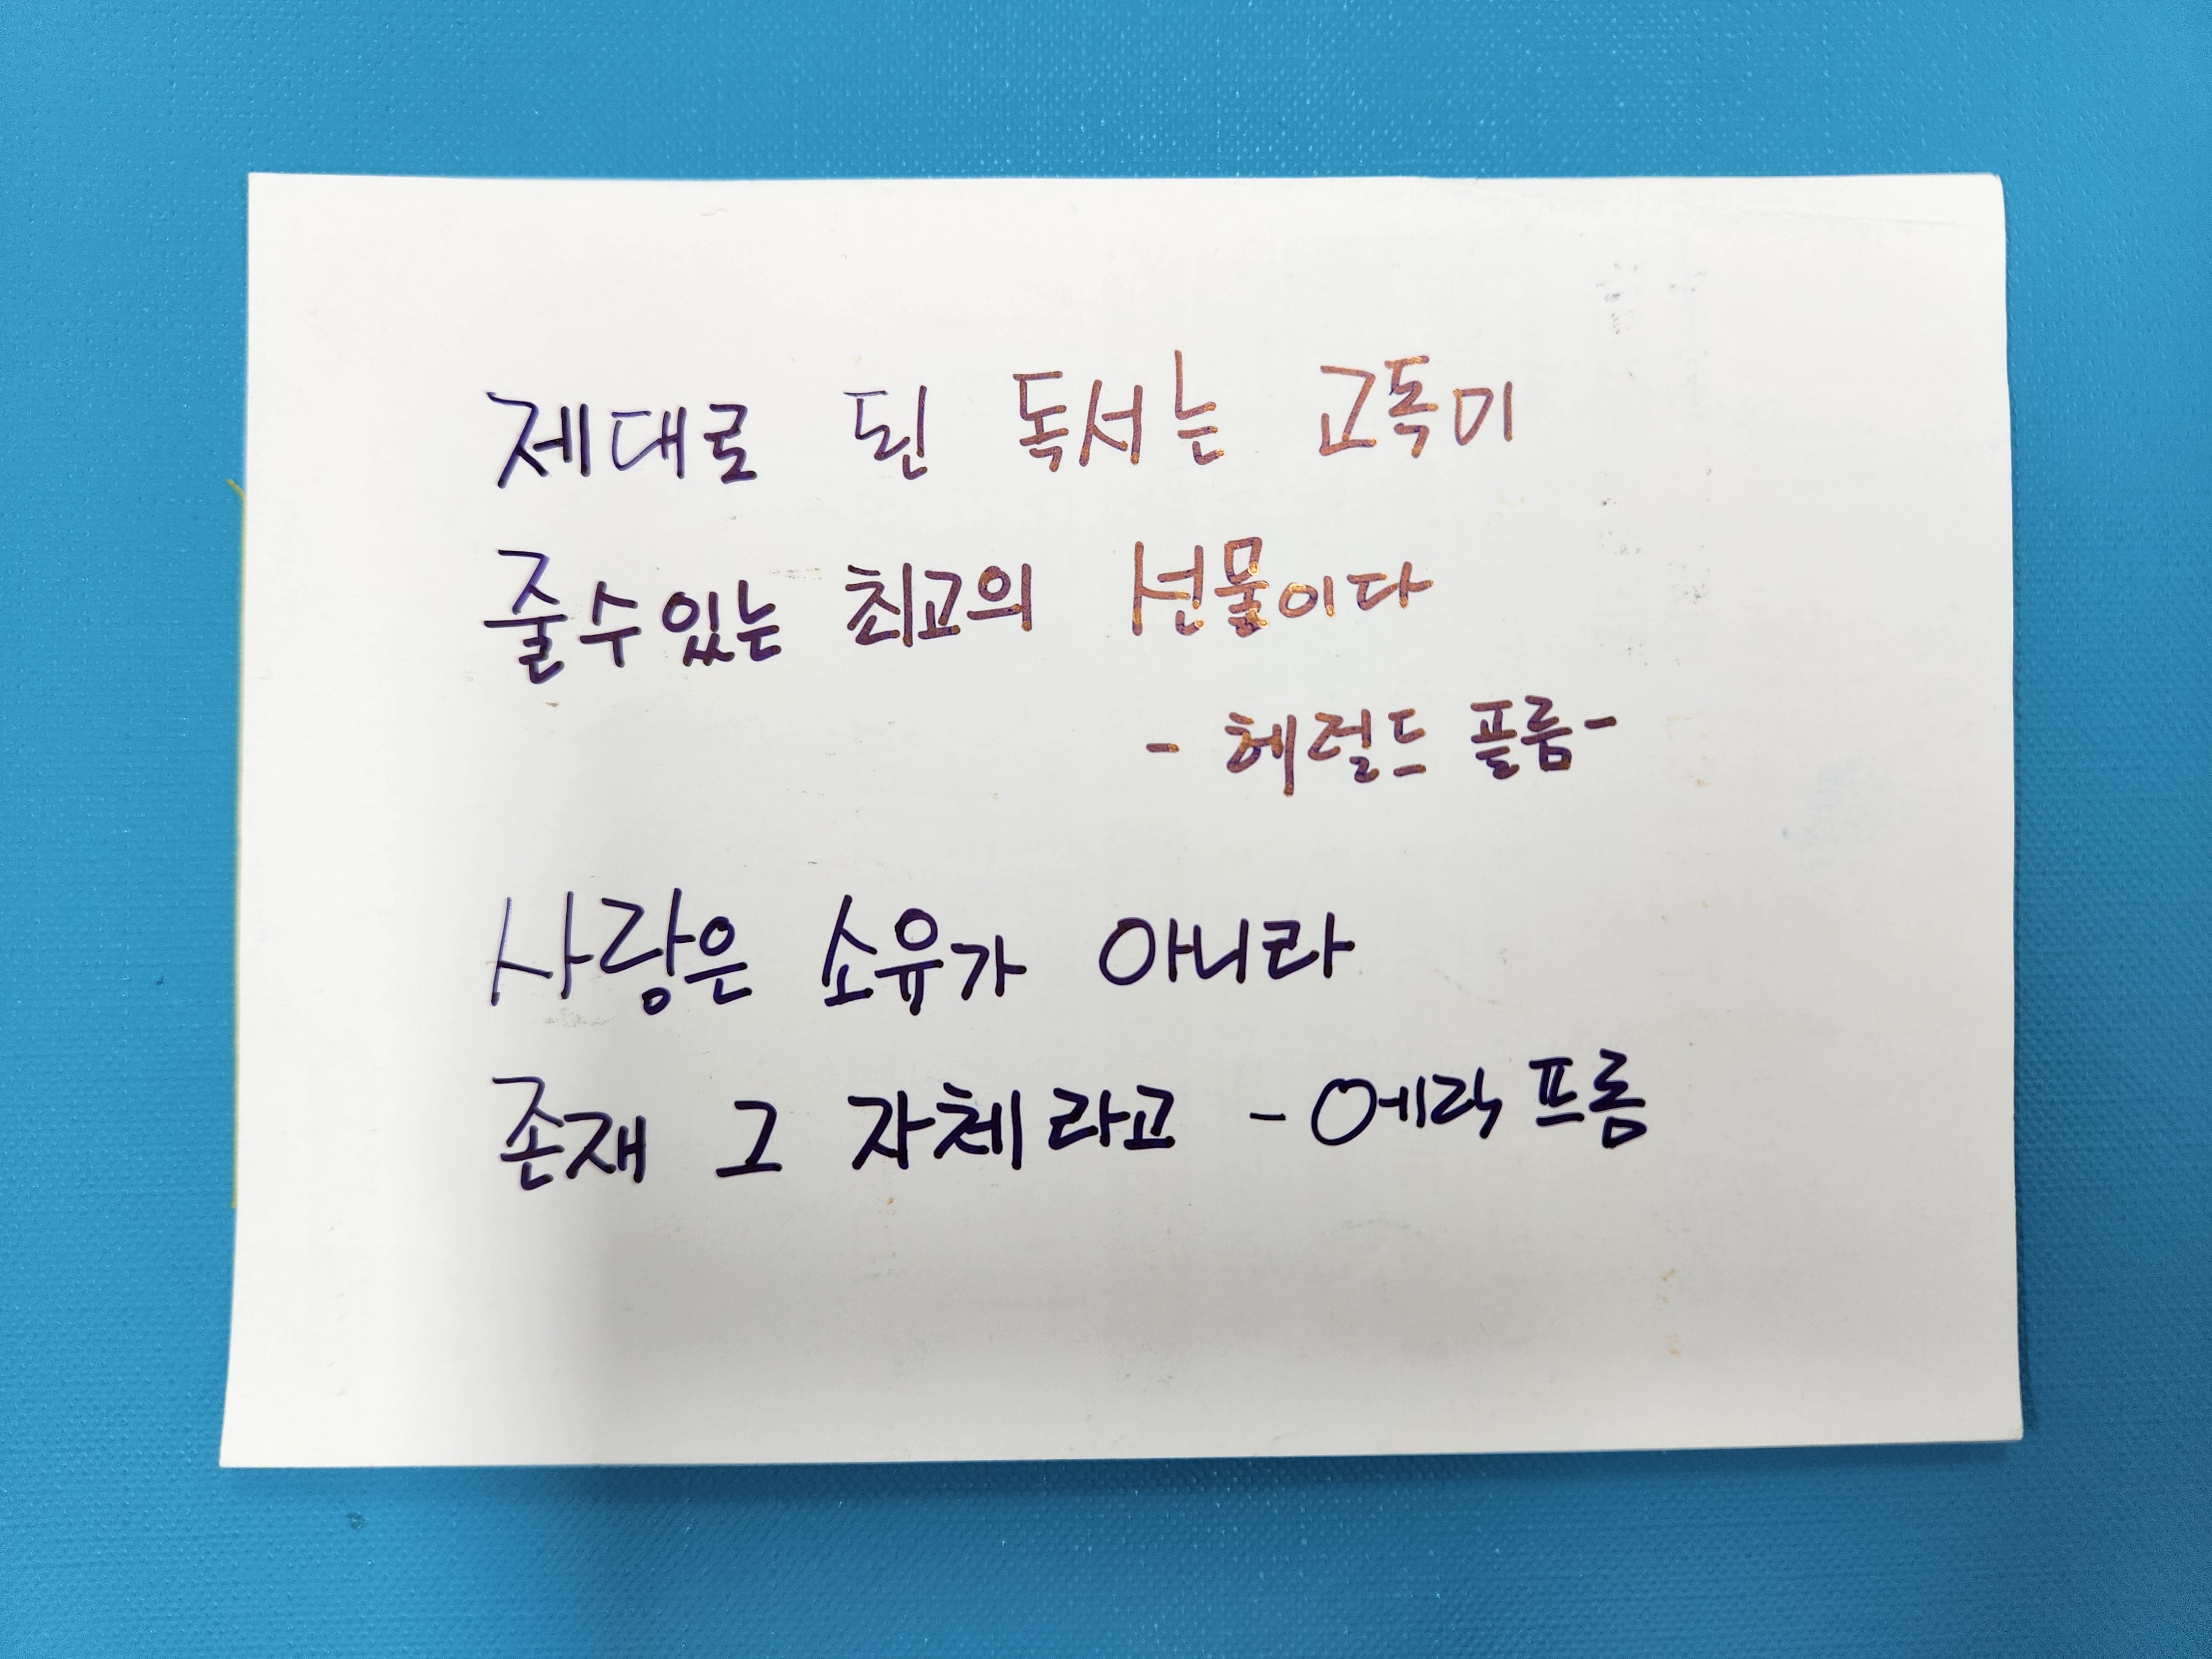 제대로 된 독서는 고독미
줄수있는 최고의 선물이다
- 헤럴드 플룸-
사랑은 소유가 아니라
존재 그 자체라고 - 에릭 프롬